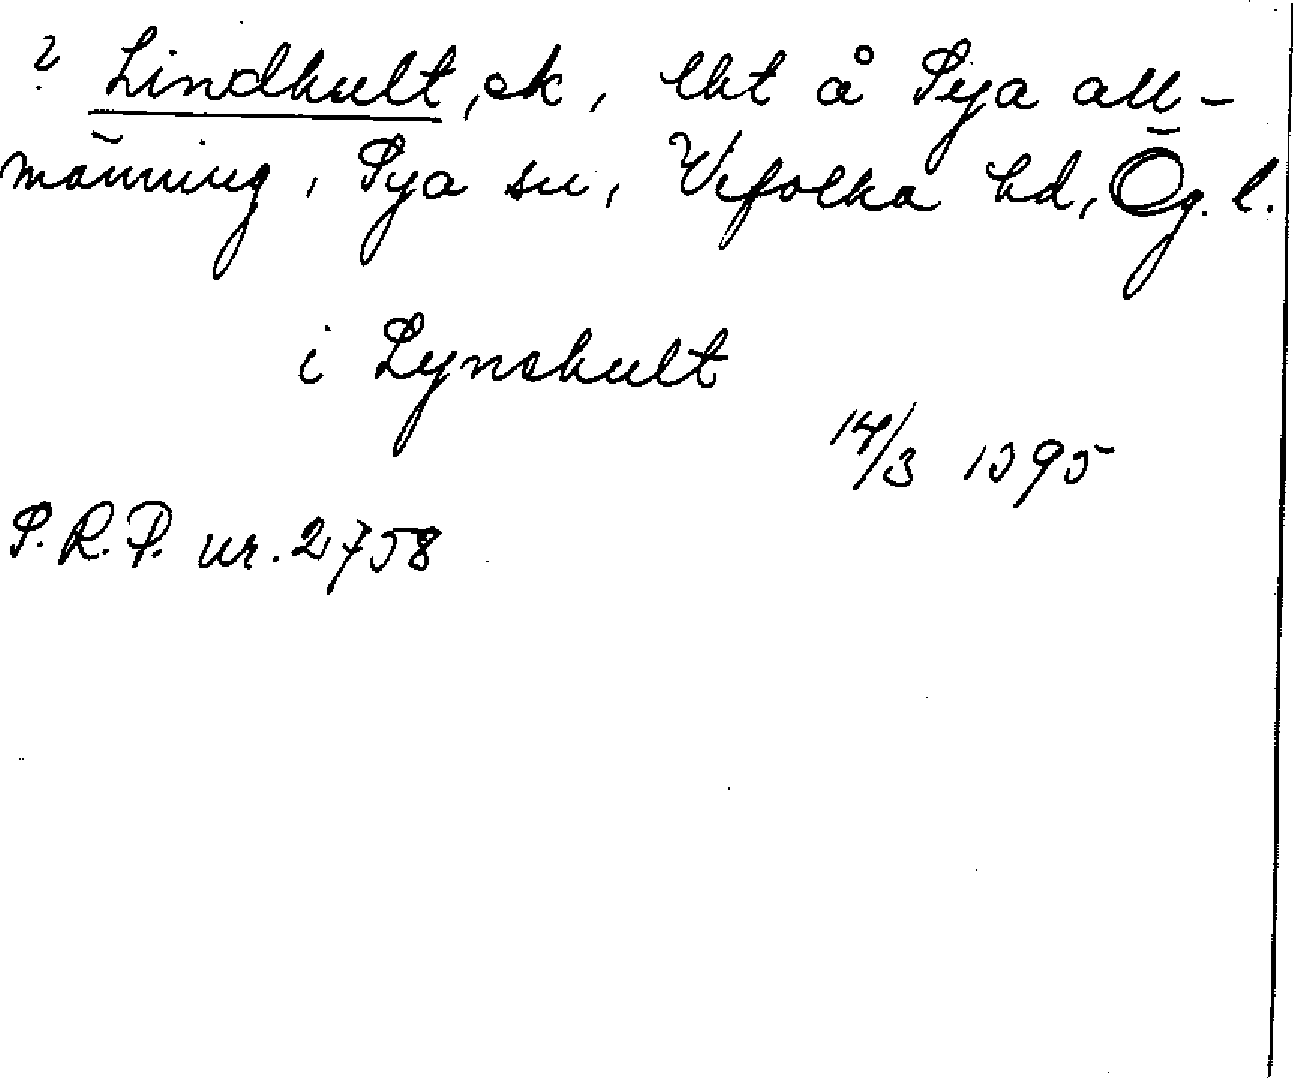 ? Lindhult, ek, lht å Sya all-
männing, Sya sn, Vifolka hd, Ög. l.
i Lynshult
14/3 1395
S.R.P. nr. 2758